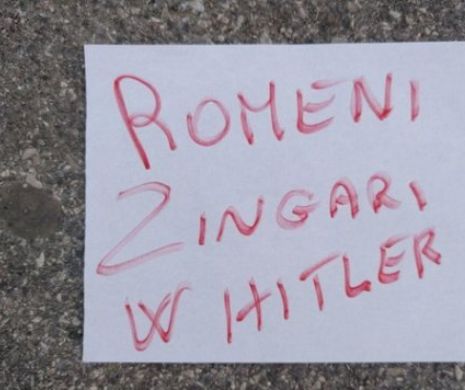 ROMENI
ZINGARI
W HITLER